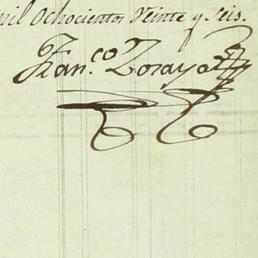 mil Ochocientos Veinte y Seis.
Fran.co Zoraya